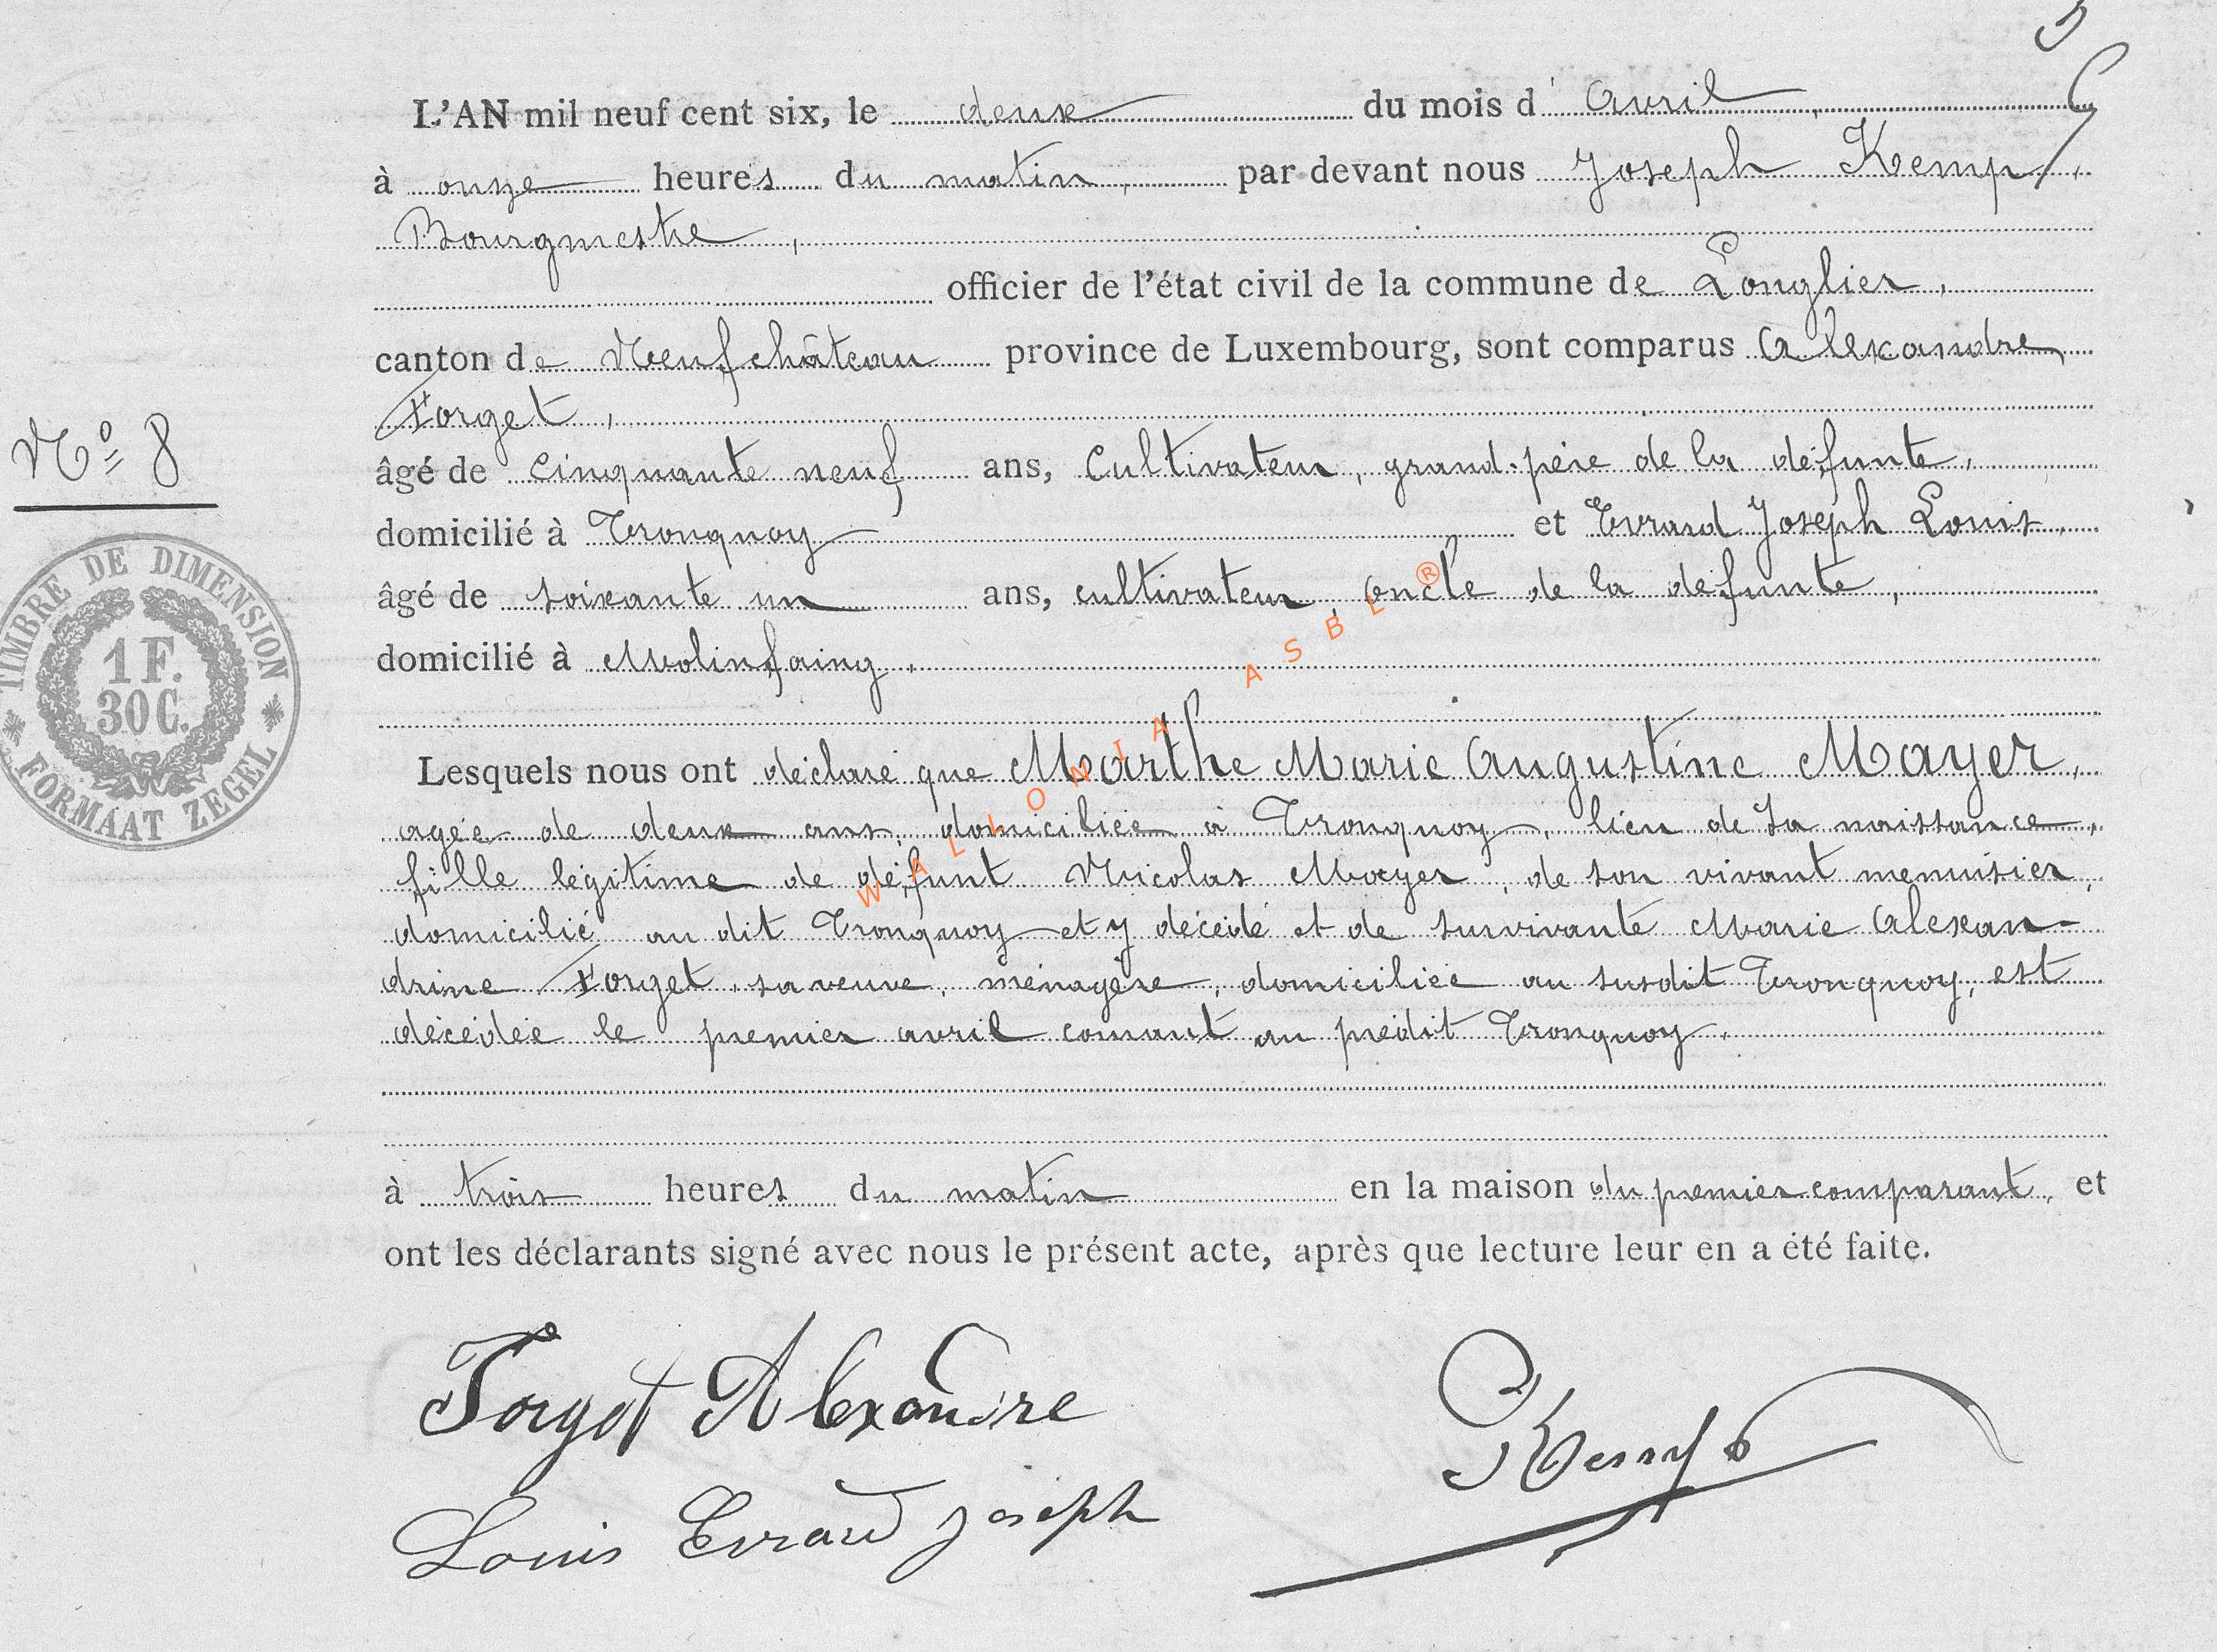 L'AN mil neuf cent six, le deux du mois d'Avril,
à onze heures du matin, par devant nous Joseph Kemp,
Bourgmestre,
officier de l'état civil de la commune de Longlier,
canton de Neufchâteau province de Luxembourg, sont comparus Alexandre
Forget,
Nº 8
âgé de cinquante neuf ans, Cultivateur, grand-père de la défunte,
domicilié à Tronquoy et Evrard Joseph Louis,
âgé de soixante un ans, cultivateur, oncle de la défunte,
domicilié à Molinfaing.
TIMBRE DE DIMENSION
1 F.
30 C.
FORMAAT ZEGEL
WALLONIA ASBL ®
Lesquels nous ont déclaré que Marthe Marie Augustine Mayer,
agée de deux ans, domiciliée à Tronquoy, lieu de sa naissance,
fille légitime de défunt Nicolas Mayer, de son vivant menuisier,
domicilié au dit Tronquoy et y décédé et de survivante Marie Alexan-
drine Forget, sa veuve, ménagère, domiciliée au susdit Tronquoy, est
décédée le premier avril courant au prédit Tronquoy.
à trois heures du matin en la maison du premier comparant, et
ont les déclarants signé avec nous le présent acte, après que lecture leur en a été faite.
Forget Alexandre
Kemp
Louis Evrard Joseph